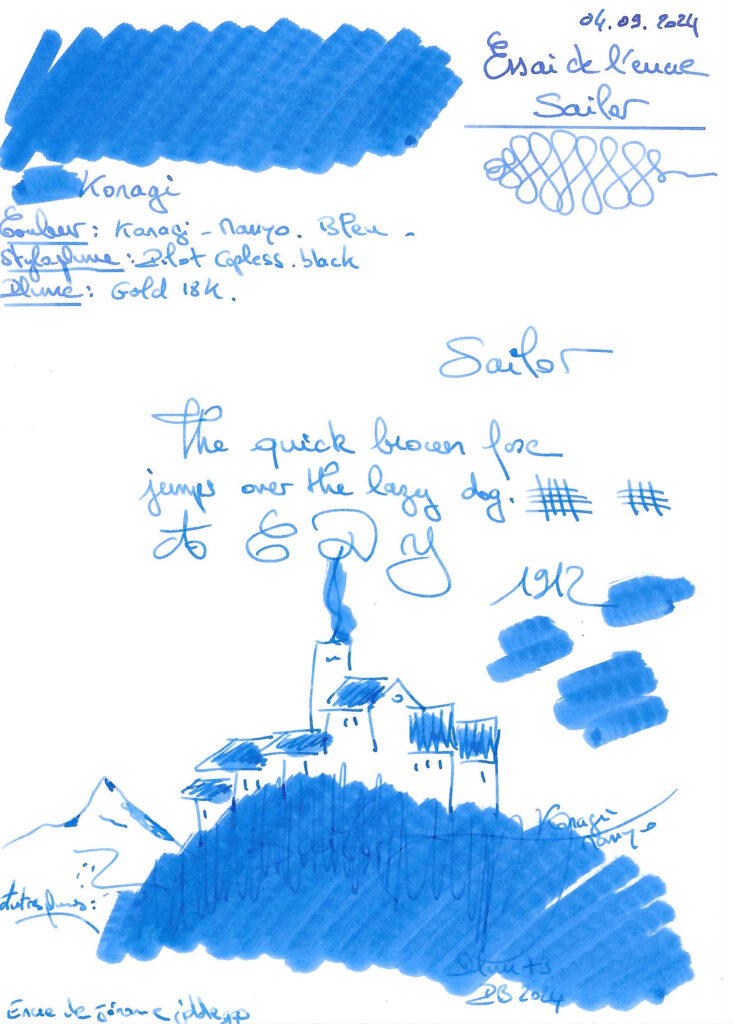 04.09.2024
Essai de l'encre
Sailor
Konagi
Couleur: Konagi - Manyo. Bleu -
Stylo plume: Pilot Capless. black
Plume: Gold 18K.
Sailor
The quick brown fox
jumps over the lazy dog.
1912
Konagi
Manyo
DB 2024
Encre de Jérome